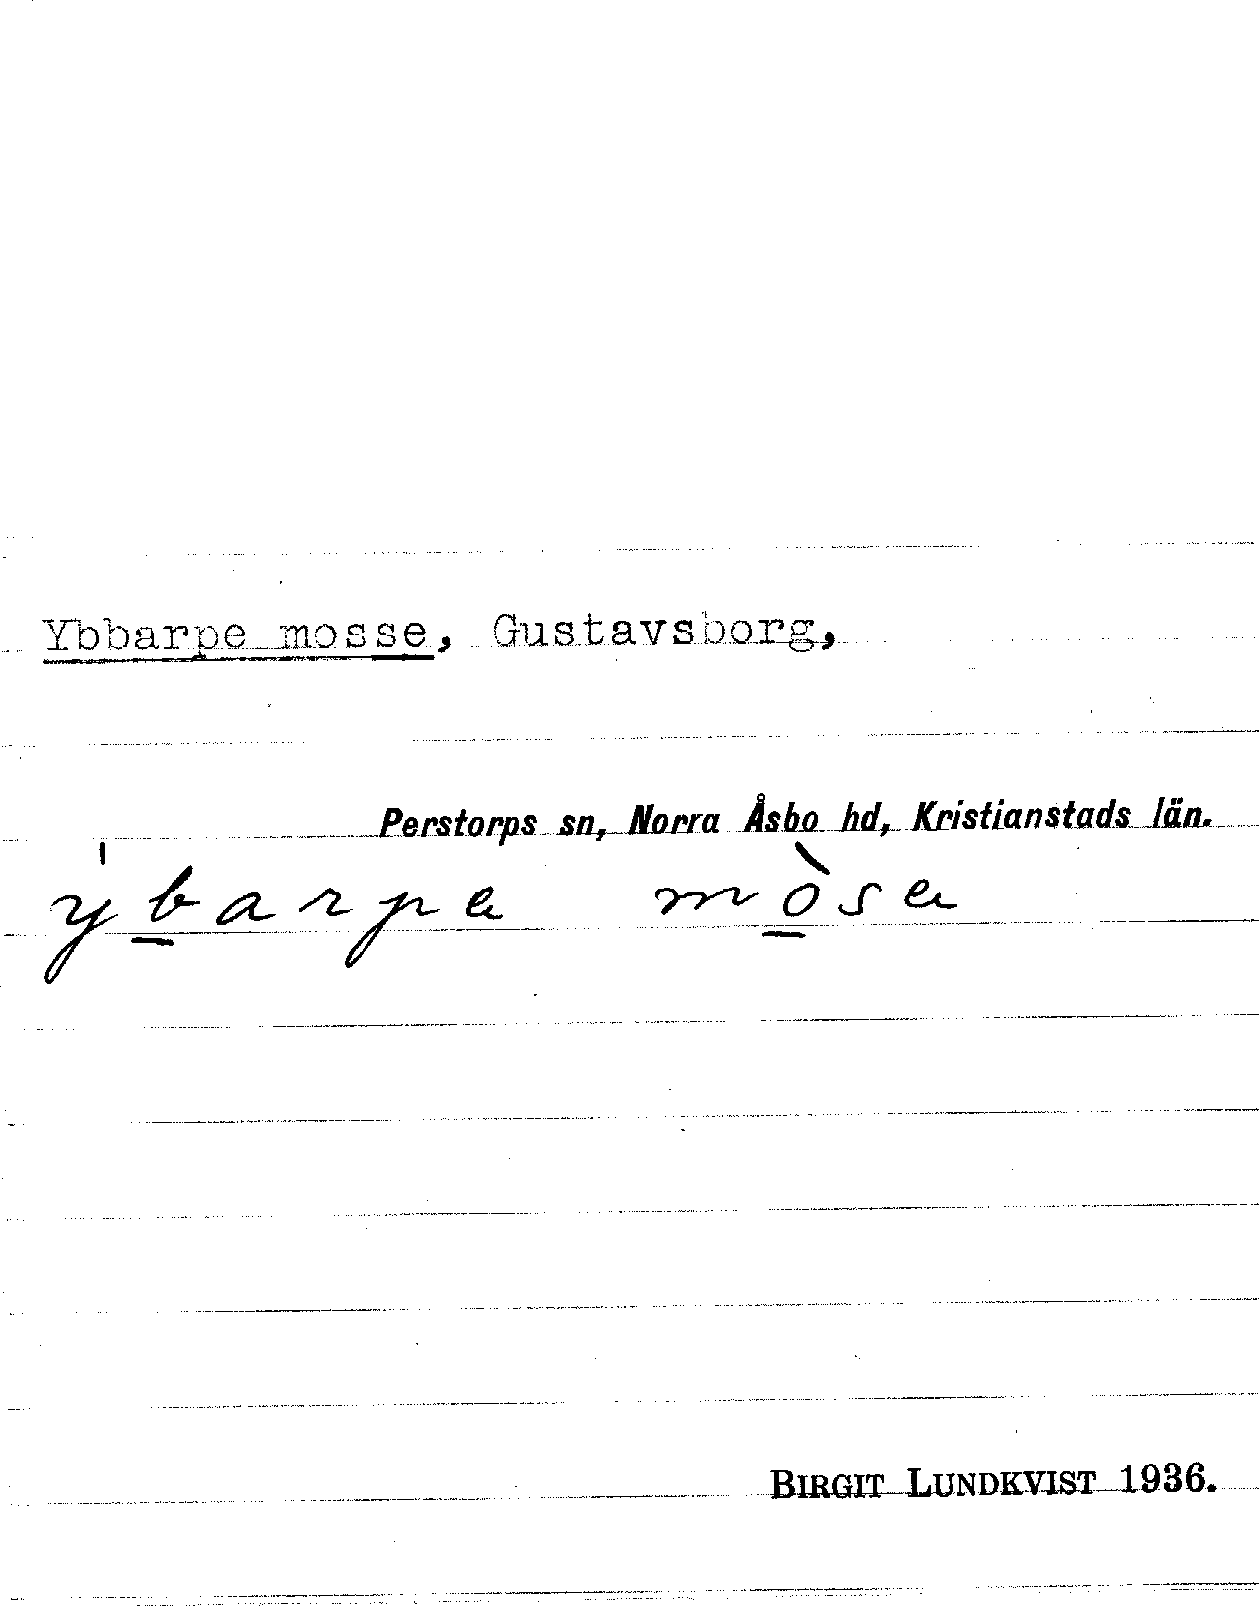 Ybbarpe mosse, Gustavsborg,
Perstorps sn, Norra Åsbo hd, Kristianstads län.
ýb̲arpa mò̲sa
BIRGIT LUNDKVIST 1936.